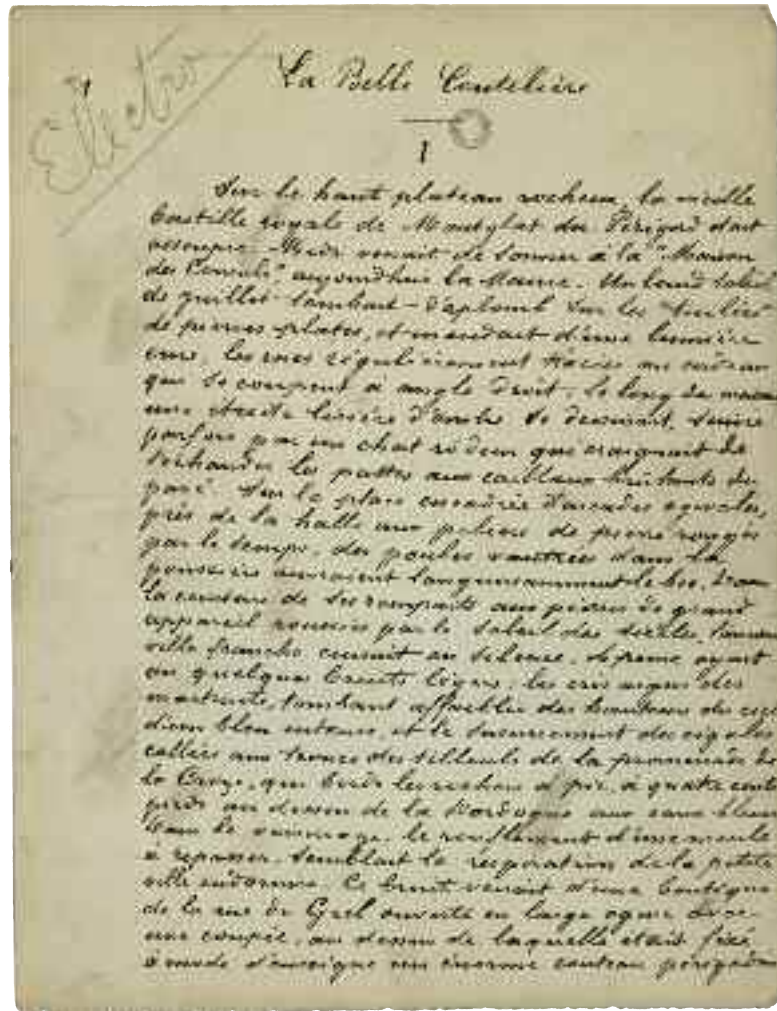 Electro
La Belle Coutelière
I
Sur le haut plateau rocheux, la vieille
bastille royale de Montglat du Périgord était
assoupie. Midi venait de sonner à la "Maison
des Consuls", aujourd'hui la Mairie. Un lourd soleil
de juillet tombait d'aplomb sur les
de pierres plates, et inondait d'une lumière
crue, les rues régulièrement tracées au cordeau
que se coupent à angle droit. Le long des
une étroite lisière d'ombre se dessinait, suivie
parfois par un chat rôdeur qui craignait de
s'échauder les pattes aux cailloux brûlants du
pavé. Sur la place encadrée d'arcades ogivales,
près de la halle aux piliers de pierre rongés
par le temps, des poules vautrées dans la
poussière ouvraient languissamment le bec. Dans
la ceinture de ses remparts aux pierres de grand
appareil roussies par le soleil des siècles,
ville franche cuisait en silence. À peine ayait
on quelques bruits légers, les cris aigus des
martinets, tombant affaiblis des hauteurs du ciel
bleu intense, et le susurrement des cigales
collées aux troncs des tilleuls de la promenade de
la Croze, qui borde le rocher à pic, à quatre cents
pieds au dessus de la Dordogne aux eaux bleues
Dans le voisinage, le ronflement d'une meule
à repasser semblait la respiration de la petite
ville endormie. Ce bruit venait d'une boutique
de la rue de Grel ouverte en large ogive
une coupée, au dessus de laquelle était fixé
à mode d'enseigne un énorme couteau